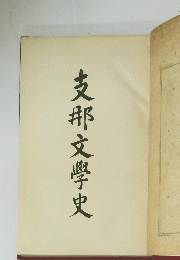 支那文學史